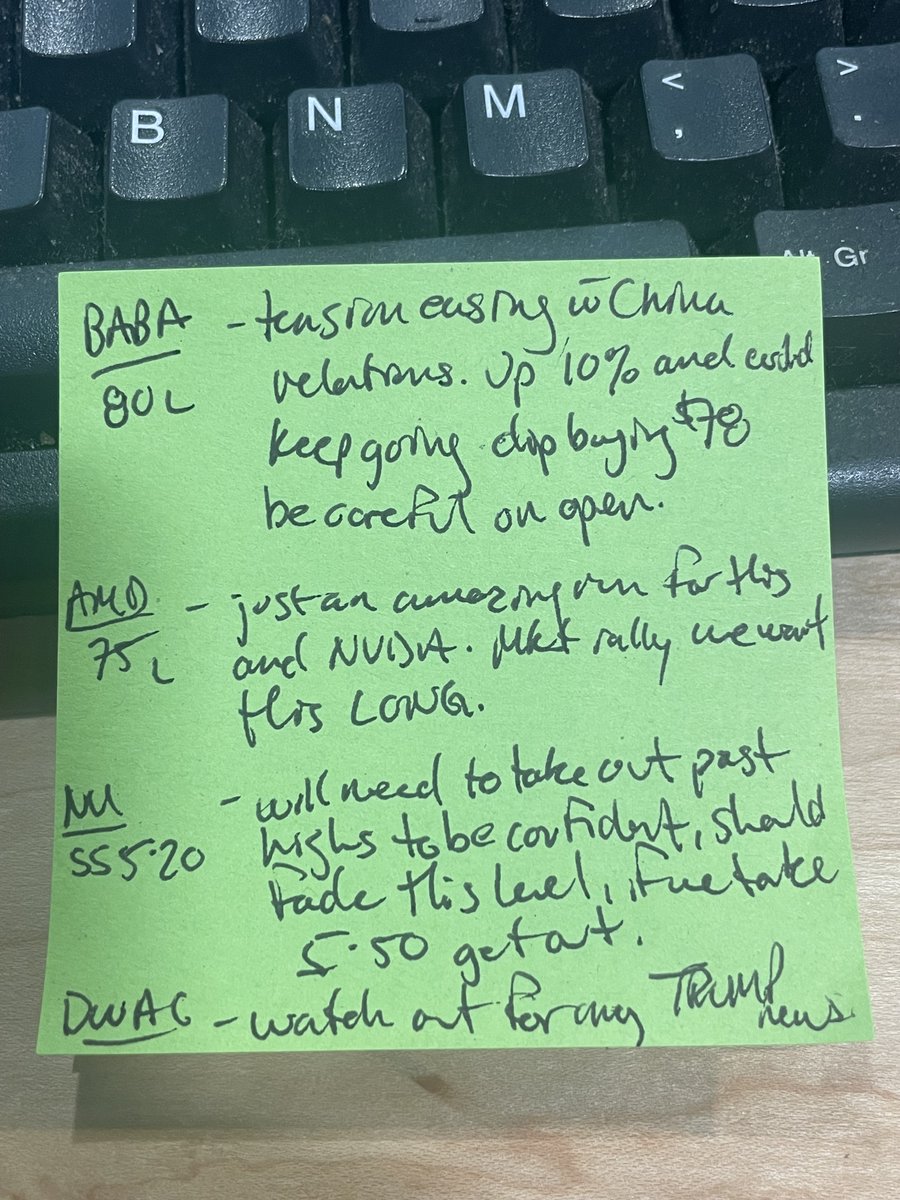 B N M < ,
> .
Alt Gr
BABA - tension easing w China
80L relations. Up 10% and could
keep going dip buying $78
be careful on open.
AMD - just an amazing run for this
75L and NVDA. Mkt rally we want
this LONG.
NU - will need to take out past
SS 5.20 highs to be confident, should
fade this level, if we take
5.50 get out.
DWAC - watch out for any TRUMP
news